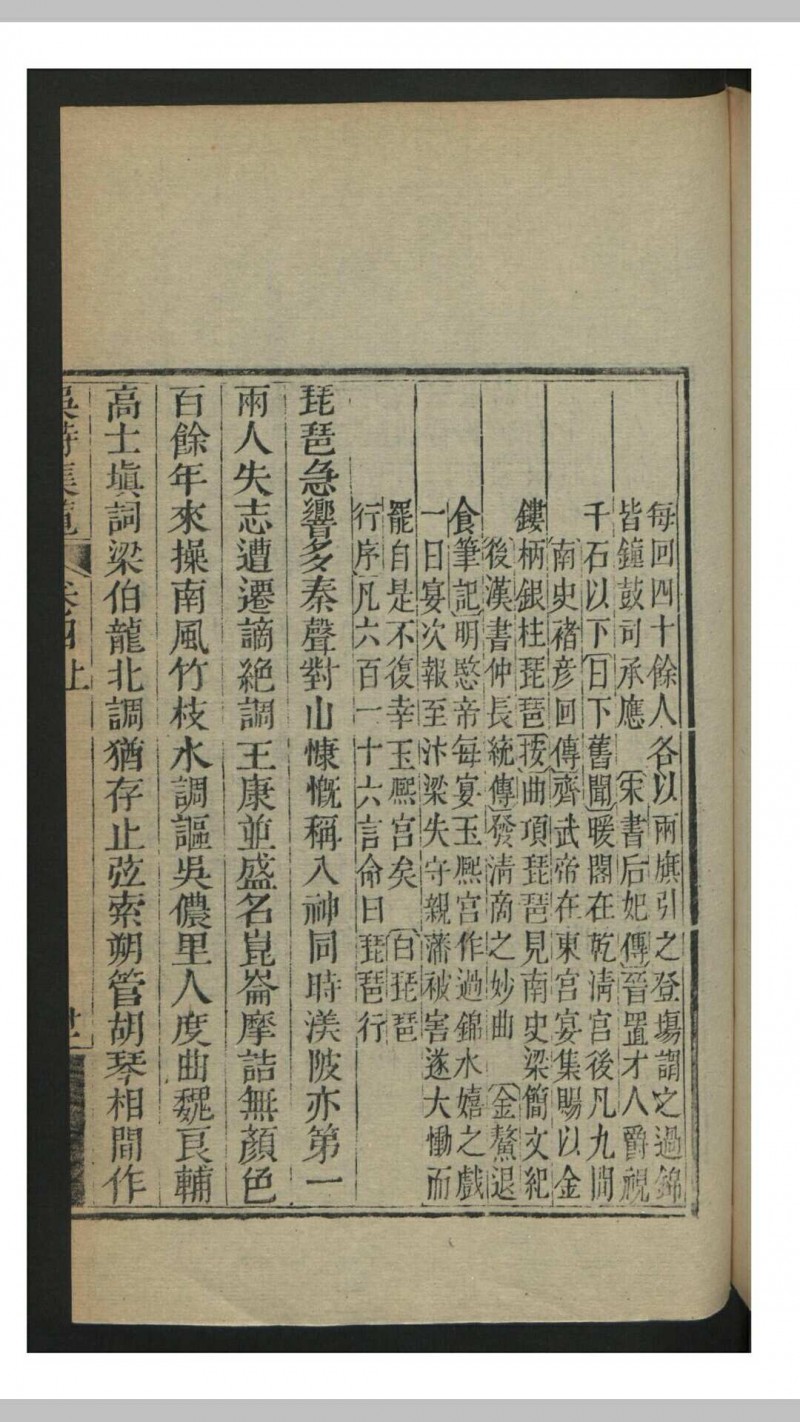 每回四十餘人各以兩旗引之登塲謂之過錦
皆鐘鼓司承應　宋書后妃傳晉置才人爵視
千石以下　日下舊聞煖閣在乾淸宮後凡九間
南史褚彥回傳齊武帝在東宮宴集賜以金
鏤柄銀柱琵琶　按曲項琵琶見南史梁簡文紀
後漢書仲長統傳發淸商之妙曲　金鰲退
食筆記明愍帝每宴玉熙宮作過錦水嬉之戲
一日宴次報至汴梁失守親藩被害遂大慟而
罷自是不復幸玉熙宮矣　白琵琶
行序凡六百一十六言命曰琵琶行
琵琶急響多秦聲對山慷慨稱入神同時渼陂亦第一
兩人失志遭遷謫絶調王康並盛名崑崙摩詰無顏色
百餘年來操南風竹枝水調謳吳儂里人度曲魏良輔
高士塡詞梁伯龍北調猶存止弦索朔管胡琴相間作
吳詩集覽　卷四上